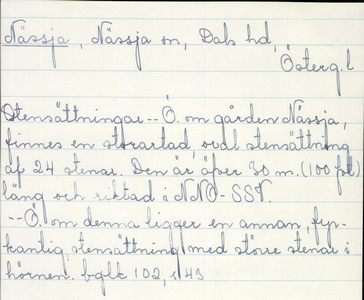 Nässja, Nässja sn, Dals hd,
Österg. l
Stensättningar -- Ö. om gården Nässja,
finnes en storartad, oval stensättning
af 24 stenar. Den är öfver 30 m. (100 fot)
lång och riktad i NNO-SSV.
-- Ö. om denna ligger en annan, fyr-
kantig, stensättning med större stenar i
hörnen. bglk 102, s 43